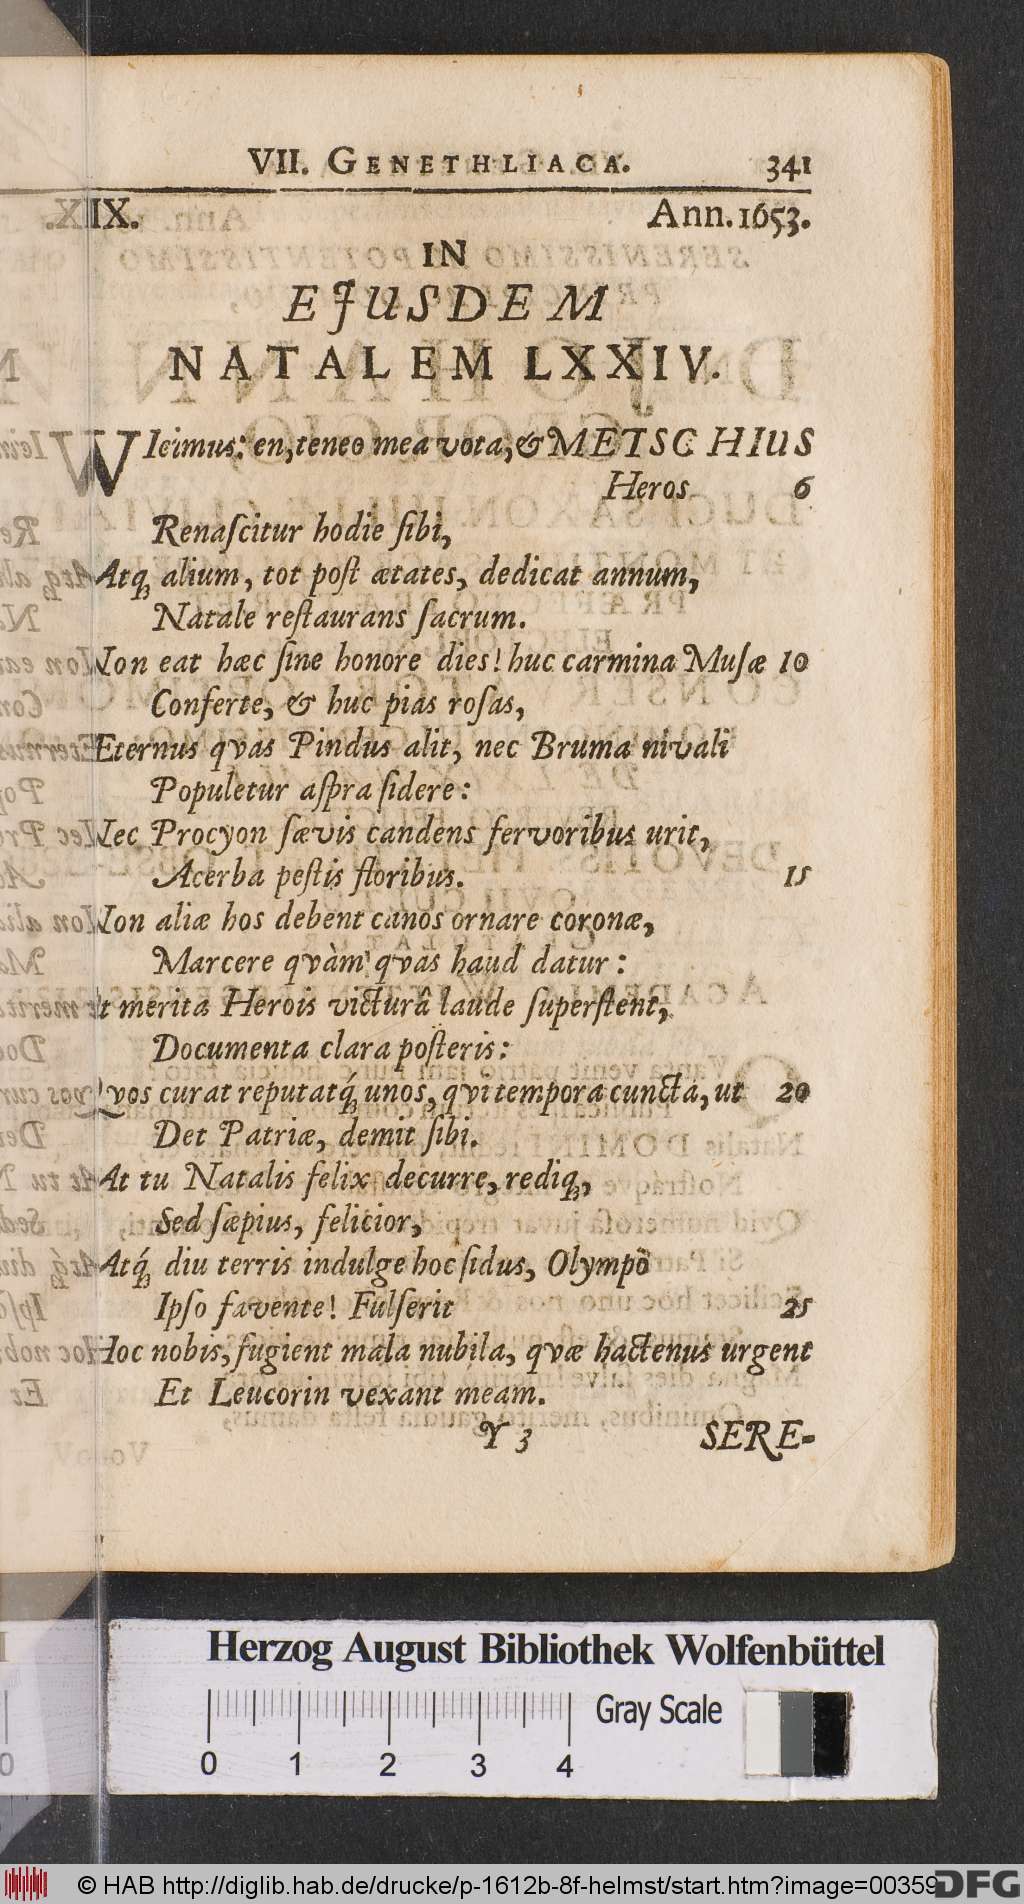 VII. GENETHLIACA. 341
XIX. Ann. 1653.
IN
EJUSDEM
NATALEM LXXIV.
VIcimus: en, teneo mea vota, & METSCHIUS
Heros 6
Renaſcitur hodie ſibi,
Atq́; alium, tot poſt ætates, dedicat annum,
Natale reſtaurans ſacrum.
Non eat hæc ſine honore dies! huc carmina Muſæ 10
Conferte, & huc pias roſas,
Æternus qvas Pindus alit, nec Bruma nivali
Populetur aſpra ſidere:
Nec Procyon ſævis candens fervoribus urit,
Acerba peſtis floribus. 15
Non aliæ hos debent canos ornare coronæ,
Marcere qvàm qvas haud datur:
Ut merita Herois victurâ laude ſuperſtent,
Documenta clara poſteris:
Qvos curat reputatq́; unos, qvi tempora cuncta, ut 20
Det Patriæ, demit ſibi.
At tu Natalis felix decurre, rediq;,
Sed ſæpius, felicior,
Atq́; diu terris indulge hoc ſidus, Olympô
Ipſo favente! Fulſerit 25
Hoc nobis, fugient mala nubila, qvæ hactenus urgent
Et Leucorin vexant meam.
Y 3 SERE-
Herzog August Bibliothek Wolfenbüttel
Gray Scale
0 1 2 3 4
© HAB http://diglib.hab.de/drucke/p-1612b-8f-helmst/start.htm?image=00359
DFG